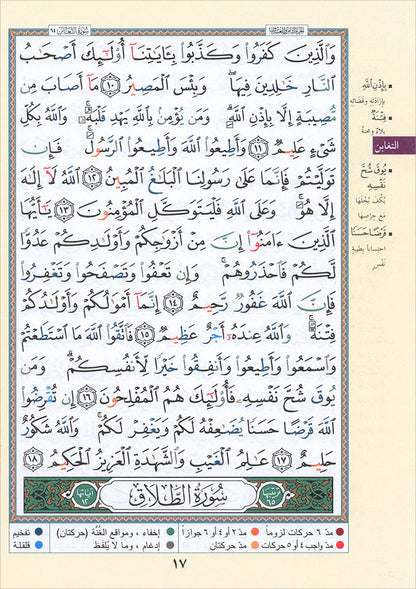 الجزء الثامن والعشرون
سورة التغابن ٦٤
وَالَّذِينَ كَفَرُوا وَكَذَّبُوا بِآيَاتِنَا أُولَٰئِكَ أَصْحَابُ
النَّارِ خَالِدِينَ فِيهَا ۖ وَبِئْسَ الْمَصِيرُ ١٠ مَا أَصَابَ مِن
مُّصِيبَةٍ إِلَّا بِإِذْنِ اللَّهِ ۗ وَمَن يُؤْمِن بِاللَّهِ يَهْدِ قَلْبَهُ ۚ وَاللَّهُ بِكُلِّ
شَيْءٍ عَلِيمٌ ١١ وَأَطِيعُوا اللَّهَ وَأَطِيعُوا الرَّسُولَ ۚ فَإِن
تَوَلَّيْتُمْ فَإِنَّمَا عَلَىٰ رَسُولِنَا الْبَلَاغُ الْمُبِينُ ١٢ اللَّهُ لَا إِلَٰهَ
إِلَّا هُوَ ۚ وَعَلَى اللَّهِ فَلْيَتَوَكَّلِ الْمُؤْمِنُونَ ١٣ يَا أَيُّهَا
الَّذِينَ آمَنُوا إِنَّ مِنْ أَزْوَاجِكُمْ وَأَوْلَادِكُمْ عَدُوًّا
لَّكُمْ فَاحْذَرُوهُمْ ۚ وَإِن تَعْفُوا وَتَصْفَحُوا وَتَغْفِرُوا
فَإِنَّ اللَّهَ غَفُورٌ رَّحِيمٌ ١٤ إِنَّمَا أَمْوَالُكُمْ وَأَوْلَادُكُمْ
فِتْنَةٌ ۚ وَاللَّهُ عِندَهُ أَجْرٌ عَظِيمٌ ١٥ فَاتَّقُوا اللَّهَ مَا اسْتَطَعْتُمْ
وَاسْمَعُوا وَأَطِيعُوا وَأَنفِقُوا خَيْرًا لِّأَنفُسِكُمْ ۗ وَمَن
يُوقَ شُحَّ نَفْسِهِ فَأُولَٰئِكَ هُمُ الْمُفْلِحُونَ ١٦ إِن تُقْرِضُوا
اللَّهَ قَرْضًا حَسَنًا يُضَاعِفْهُ لَكُمْ وَيَغْفِرْ لَكُمْ ۚ وَاللَّهُ شَكُورٌ
حَلِيمٌ ١٧ عَالِمُ الْغَيْبِ وَالشَّهَادَةِ الْعَزِيزُ الْحَكِيمُ ١٨
ترتيبها ٦٥
سُورَةُ الطَّلَاقِ
آياتها ١٢
بِإِذْنِ اللَّهِ
بإرادته وقضائه
فِتْنَةٌ
بلاءٌ ومحنةٌ
التغابن
يُوقَ شُحَّ
نَفْسِهِ
يُكفَ بُخْلَها
مع حرصها
قَرْضًا حَسَنًا
احتساباً بطيبة
نفس
مدّ ٦ حركات لزوماً
مدّ ٢ أو ٤ أو ٦ جوازاً
إخفاء، ومواقع الغُنَّة (حركتان)
تفخيم
مدّ واجب ٤ أو ٥ حركات
مدّ حركتان
إدغام، وما لا يُلفَظ
قلقلة
١٧